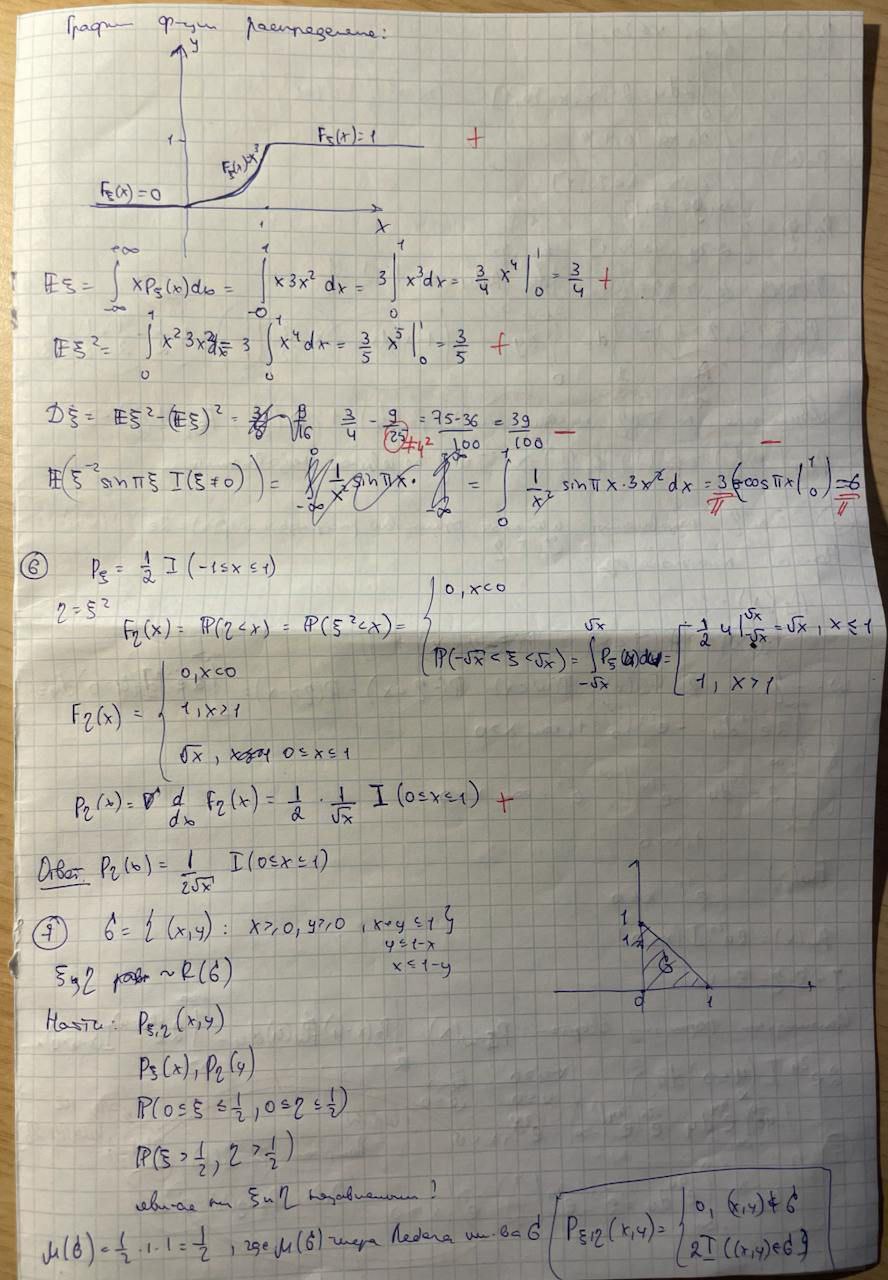 График ф-ции распределения:
y
1
F_ξ(x)=1 +
F_ξ(x)=x³
F_ξ(x)=0
1
x
𝔼ξ = ∫_{-∞}^{+∞} x p_ξ(x)dx = ∫_{-0}^{1} x 3x² dx = 3∫_{0}^{1} x³dx = 3/4 x⁴|_0^1 = 3/4 +
𝔼ξ² = ∫_0^1 x² 3x² dx = 3 ∫_0^1 x⁴dx = 3/5 x⁵|_0^1 = 3/5 +
Dξ = 𝔼ξ² - (𝔼ξ)² = 3/4 - 9/25 ≠4² = 75-36/100 = 39/100 —
𝔼(ξ⁻² sin πξ I(ξ≠0)) = = ∫_0^1 1/x² sin πx · 3x² dx = 3/π (-cos πx|_0^1) = 6/π —
⑥ p_ξ = 1/2 I(-1≤x≤1)
η = ξ²
F_η(x) = ℙ(η<x) = ℙ(ξ²<x) = { 0, x<0
ℙ(-√x < ξ < √x) = ∫_{-√x}^{√x} p_ξ(u)du = [ 1/2 u|_{-√x}^{√x} = √x, x≤1
1, x>1
F_η(x) = { 0, x<0
1, x>1
√x, 0≤x≤1
p_η(x) = d/dx F_η(x) = 1/2 · 1/√x I(0≤x≤1) +
Ответ p_η(x) = 1/2√x I(0≤x≤1)
⑦ G = {(x,y): x≥0, y≥0, x+y≤1}
y≤1-x
x≤1-y
1
G
0 1
ξ и η ~ R(G)
Найти: p_ξ,η(x,y)
p_ξ(x), p_η(y)
ℙ(0≤ξ≤1/2, 0≤η≤1/2)
ℙ(ξ>1/2, η>1/2)
ли ξ и η независимыми?
μ(G) = 1/2·1·1 = 1/2, где μ(G) мера Лебега мн-ва G
p_ξ,η(x,y) = { 0, (x,y)∉G
2I((x,y)∈G)